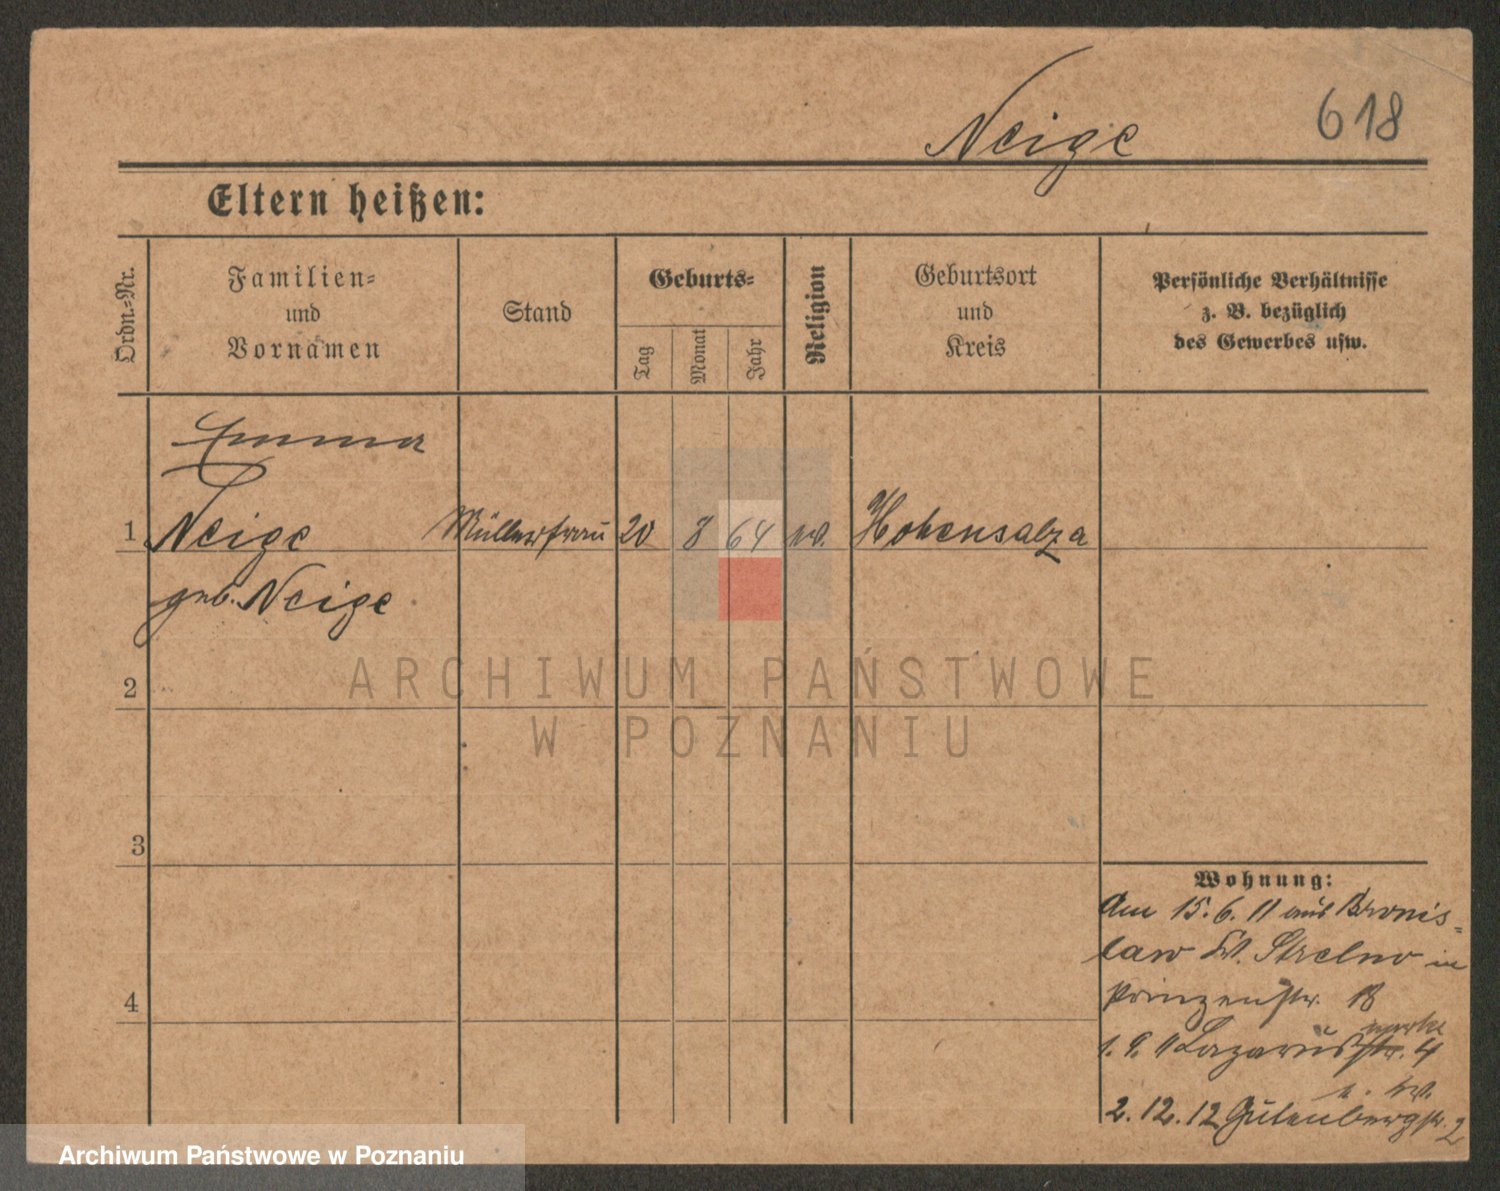 Neige
618
Eltern heißen:
Ordn.-Nr.
Familien-
und
Vornamen
Stand
Geburts-
Tag
Monat
Jahr
Religion
Geburtsort
und
Kreis
Persönliche Verhältnisse
z. B. bezüglich
des Gewerbes usw.
Emma
1 Neige Müllerfrau 20 8 64 Hohensalza
geb. Neige
2
3
4
Wohnung:
Am 15.6.11 aus Bronis-
law Kr. Strelno in
Prinzenstr. 18
markt
1. 9. 11 Lazarusstr. 4
2.12.12 Gutenbergstr. 2
ARCHIWUM PAŃSTWOWE
W POZNANIU
Archiwum Państwowe w Poznaniu